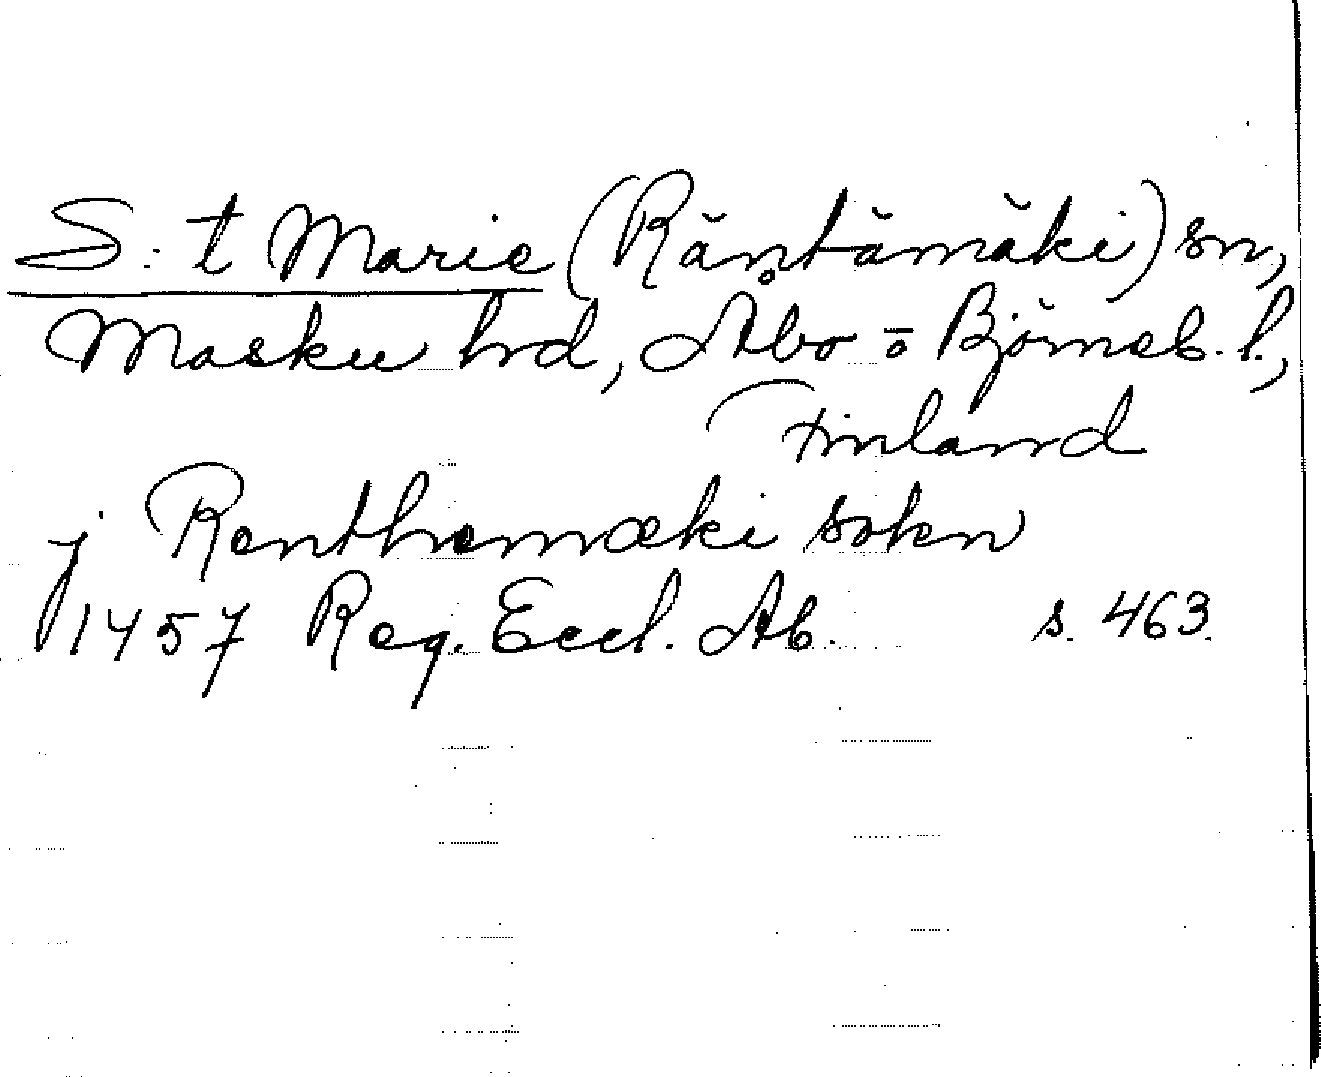 S:t Marie (Räntämäki) sn,
Masku hrd, Åbo o Björneb. l.,
Finland
j Renthemæki sokn
1457 Reg. Eccl. Ab. s. 463.